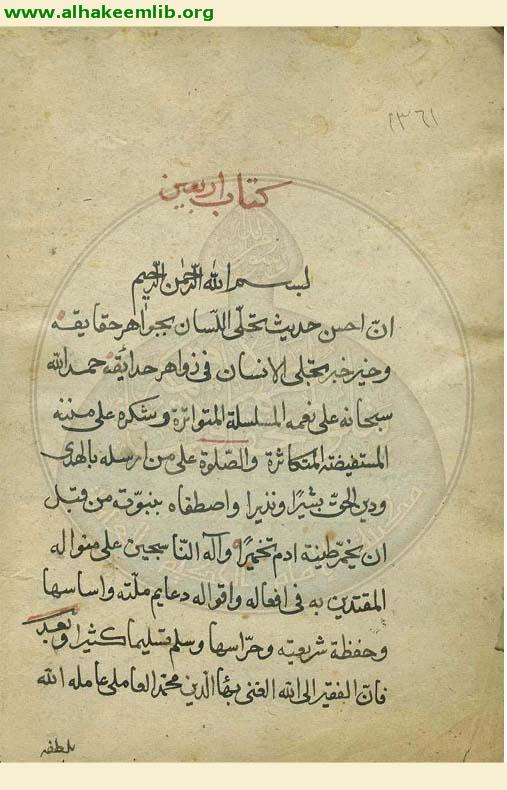 www.alhakeemlib.org
٢٣٦١
كتاب اربعين
بسم الله الرحمن الرحيم
انّ احسن حديث تحلّى اللسان بجواهر حقايقه
وخير خبر تجلى الانسان فى زواهر حدائقه حمد الله
سبحانه على نعمه المسلسلة المتواترة وشكره على مننه
المستفيضة المتكاثرة والصّلوة على من ارسله بالهدى
ودين الحقّ بشيرًا ونذيرا واصطفاه بنبوّته من قبل
ان يخمّر طينة ادم تخميرًا وآله النّاسجين على منواله
المقتدين به فى افعاله واقواله دعايم ملّته واساسها
وحفظة شريعته وحرّاسها وسلم تسليما كثيرا وبعد
فانّ الفقير الى الله الغنى بهاء الدين محمّد العاملى عامله الله
بلطفه